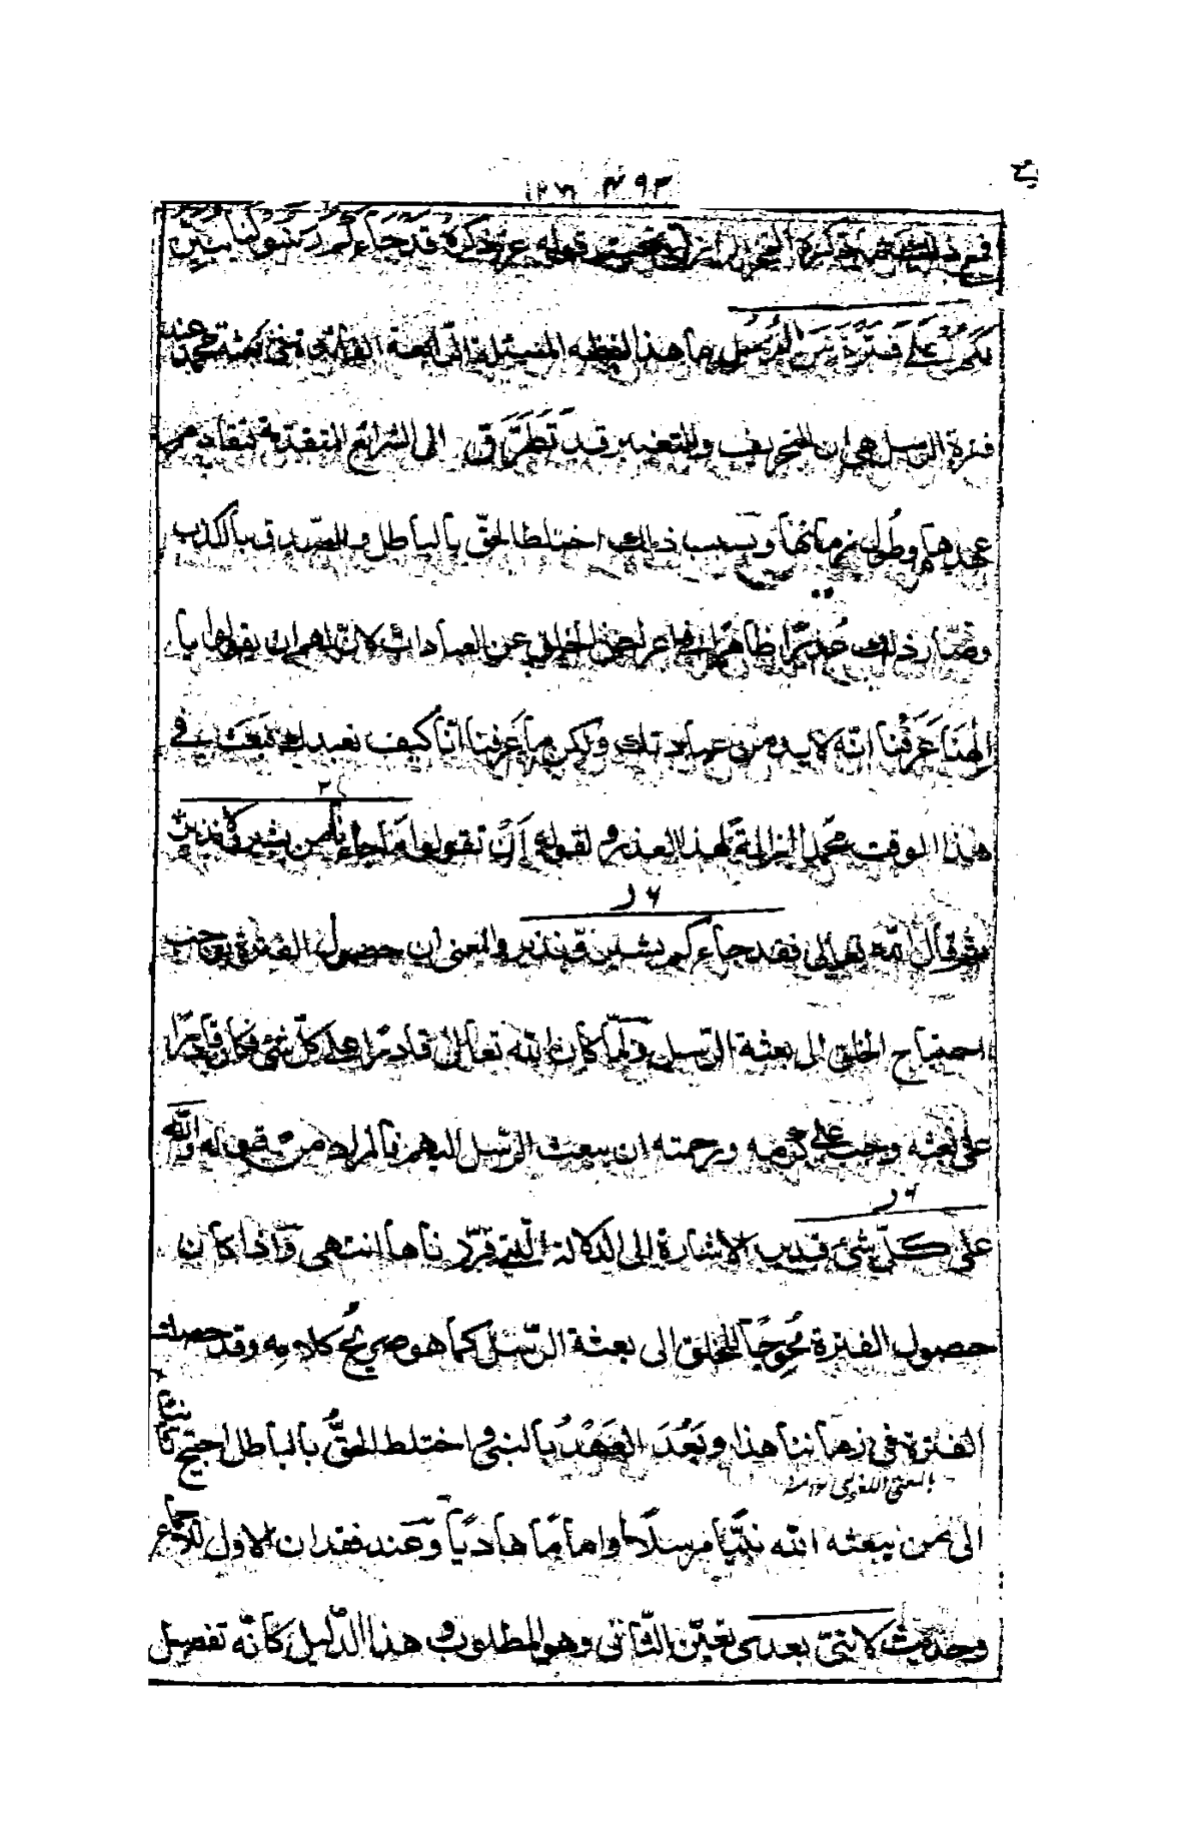 فمع ذلك ما ذكره الفخر الرازي تحت قوله عز ذكره قد جاءكم رسولنا يبين
لكم على فترة من الرسل ما هذا لفظه المسئلة الرابعة الفائدة في بعثة محمد عند
فترة الرسل هي ان التحريف والتغيير قد تطرق الى الشرائع المتقدمة لتقادم
عهدها وطول زمانها وبسبب ذلك اختلط الحق بالباطل والصدق بالكذب
وصار ذلك عذرا ظاهرا في اعراض الخلق عن العبادات لان لهم ان يقولوا يا
الهنا عرفنا انه لا بد من عبادتك ولكن ما عرفنا انا كيف نعبدك فبعث في
هذا الوقت محمدا ازالة لهذا العذر ولقوله ان تقولوا ما جاءنا من بشير ولا نذير
ثم قال الله تعالى فقد جاءكم بشير ونذير والمعنى ان حصول الفترة يوجب
احتياج الخلق الى بعثة الرسل ولما كان الله تعالى قادرا على كل شئ فكان قادرا
على بعثه وجب على كرمه ورحمته ان يبعث الرسل اليهم فالمراد من قوله والله
على كل شئ قدير الاشارة الى الدلالة التي قررناها انتهى واذا كان
حصول الفترة محوجا للخلق الى بعثة الرسل كما هو صريح كلامه وقد حصلت
الفترة في زماننا هذا وبعد العهد بالنبي واختلط الحق بالباطل احتيج
بالمعنى اللغوي ١٢ منه
الى من يبعثه الله نبيا مرسلا او اماما هاديا وعند فقدان الاول للاجماع
وحديث لا نبي بعدي تعين الثاني وهو المطلوب وهذا الدليل كانه تفصيل